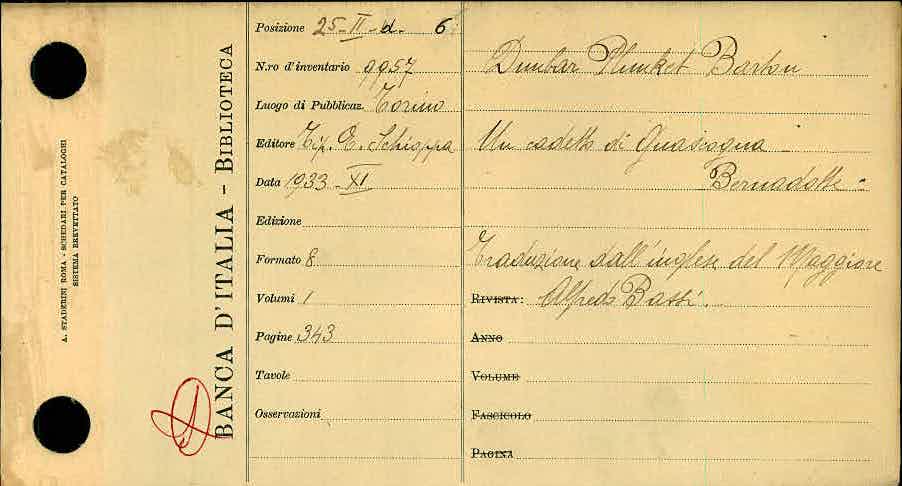 A. STADERINI ROMA - SCHEDARI PER CATALOGHI
SISTEMA BREVETTATO
BANCA D'ITALIA - BIBLIOTECA
Posizione 25-II-d- 6
N.ro d'inventario 9957
Luogo di Pubblicaz. Torino
Editore Tip. E. Schioppa
Data 1933-XI
Edizione
Formato 8
Volumi 1
Pagine 343
Tavole
Osservazioni
Dunbar Plunket Barton
Un cadetto di Guascogna -
Bernadotte -
Traduzione dall'inglese del Maggiore
RIVISTA: Alfredo Bassi.
ANNO
VOLUME
FASCICOLO
PAGINA